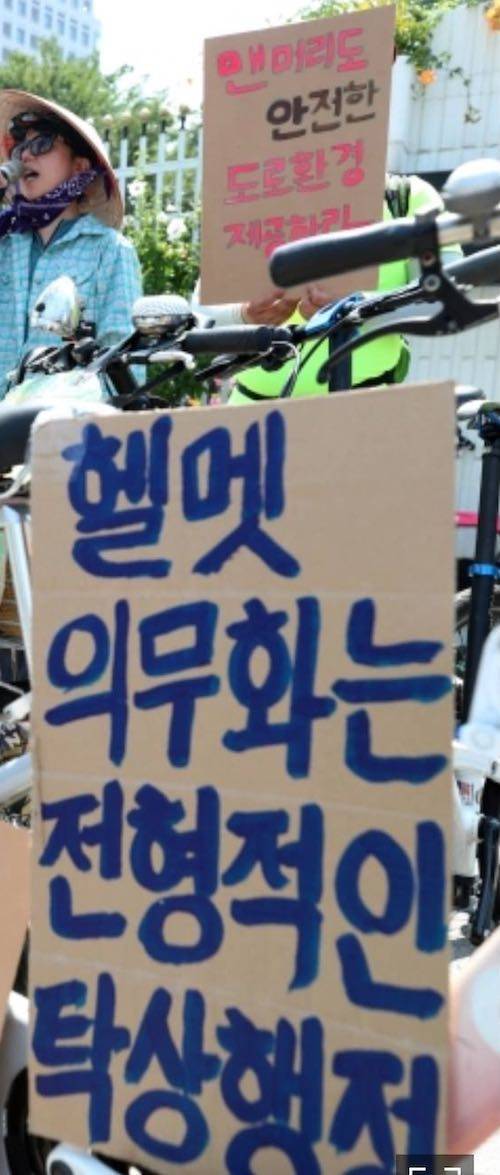 맨머리도
안전한
도로환경
제공하라
헬멧
의무화는
전형적인
탁상행정